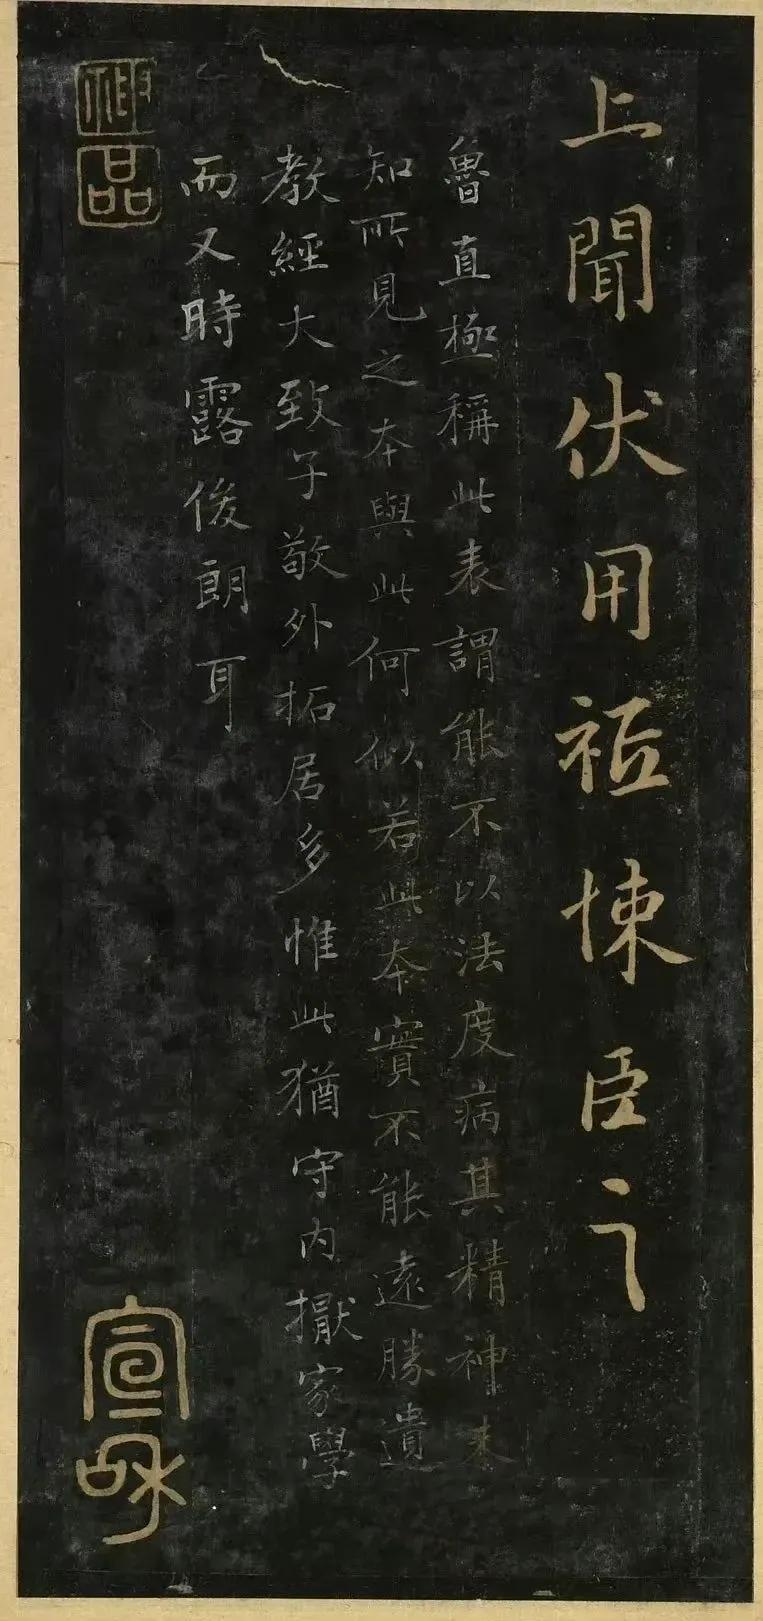 上聞伏用祗悚臣之
魯直極稱此表謂能不以法度病其精神未
知所見之本與此何似若此本實不能遠勝遺
教經大致子敬外拓居多惟此猶守內擫家學
而又時露俊朗耳
神品
宣